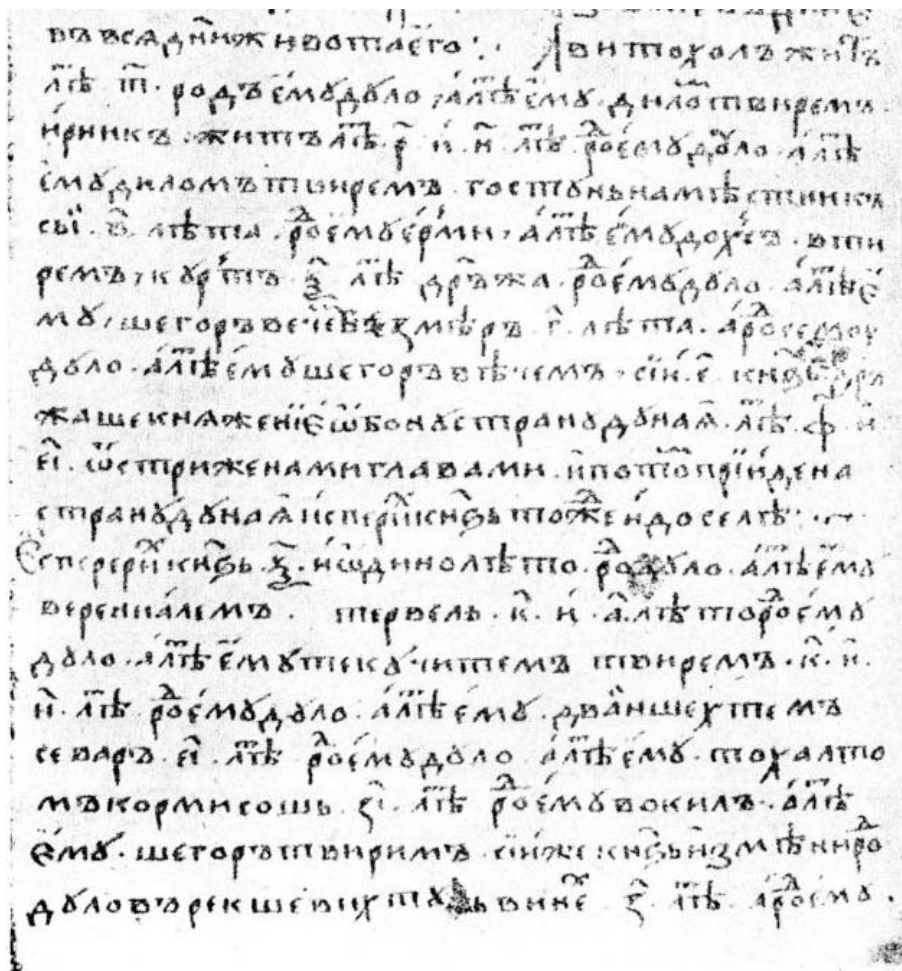 въ всѧ дн҃и живота е҆го ⁘ А҆витохолъ жиⷮ
лѣⷮ т҃· родъ є҆мѹ дѹло, а҆ лѣⷮ є҆мѹ· диломъ твирем·
и҆рникъ· житъ лѣⷮ· р҃ и҆ н҃ лѣⷮ· роⷣ є҆мѹ дѹло· а҆ лѣⷮ
є҆мѹ диломъ твиремъ· гостѹнъ намѣстникъ
сьї· в҃ лѣта· роⷣ є҆мѹ е҆рми, а҆ лѣⷮ є҆мѹ дохсъ· вти
ремъ, кѹрⷮъ ѯ҃ лѣⷮ дръжа роⷣ є҆мѹ дѹло· а҆ лѣⷮ є҆
мѹ, шегоръ вечемъ· безмѣръ г҃· лѣта· а҆ роⷣ сємѹ
дѹло· а҆ лѣⷮ є҆мѹ шегоръ вѣчемъ· сїи· е҃· кнѧⷥ дръ
жаше кнѧженїе ѡбонѹ странѹ дѹнаѧ· лѣⷮ· ф҃· и҆
еі҃· ѡстриженами главами· и҆ потоⷨ прїиде на
странѹ дѹнаѧ и҆сперїⷯ кнѧⷥь тожⷣе и҆ доселѣ ⁘
Есперерїⷯ кнѧⷥь· ѯ҃· и ѡдино лѣто· роⷣ дѹло· а҆ лѣⷮ є҆мѹ
верениалемъ· тервель· к҃· и҆· а҃· лѣто роⷣ є҆мѹ
дѹло· а҆ лѣⷮ є҆мѹ текѹчитемъ твиремъ· к҃· и҆·
н҃· лѣⷮ роⷣ є҆мѹ дѹло· а҆ лѣⷮ є҆мѹ· дваншехтемъ
севаръ· еі҃· лѣⷮ роⷣ є҆мѹ дѹло а҆ лѣⷮ є҆мѹ· тохалто
мъ кормисошь· зі҃· лѣⷮ роⷣ є҆мѹ вокилъ· а҆ лѣⷮ
є҆мѹ· шегоръ твиримъ· сїи же кнѧⷥь и҆змѣни роⷣ
дѹловъ рекше вихтѹнь винеⷯ· з҃· лѣⷮ а҆ роⷣ є҆мѹ·